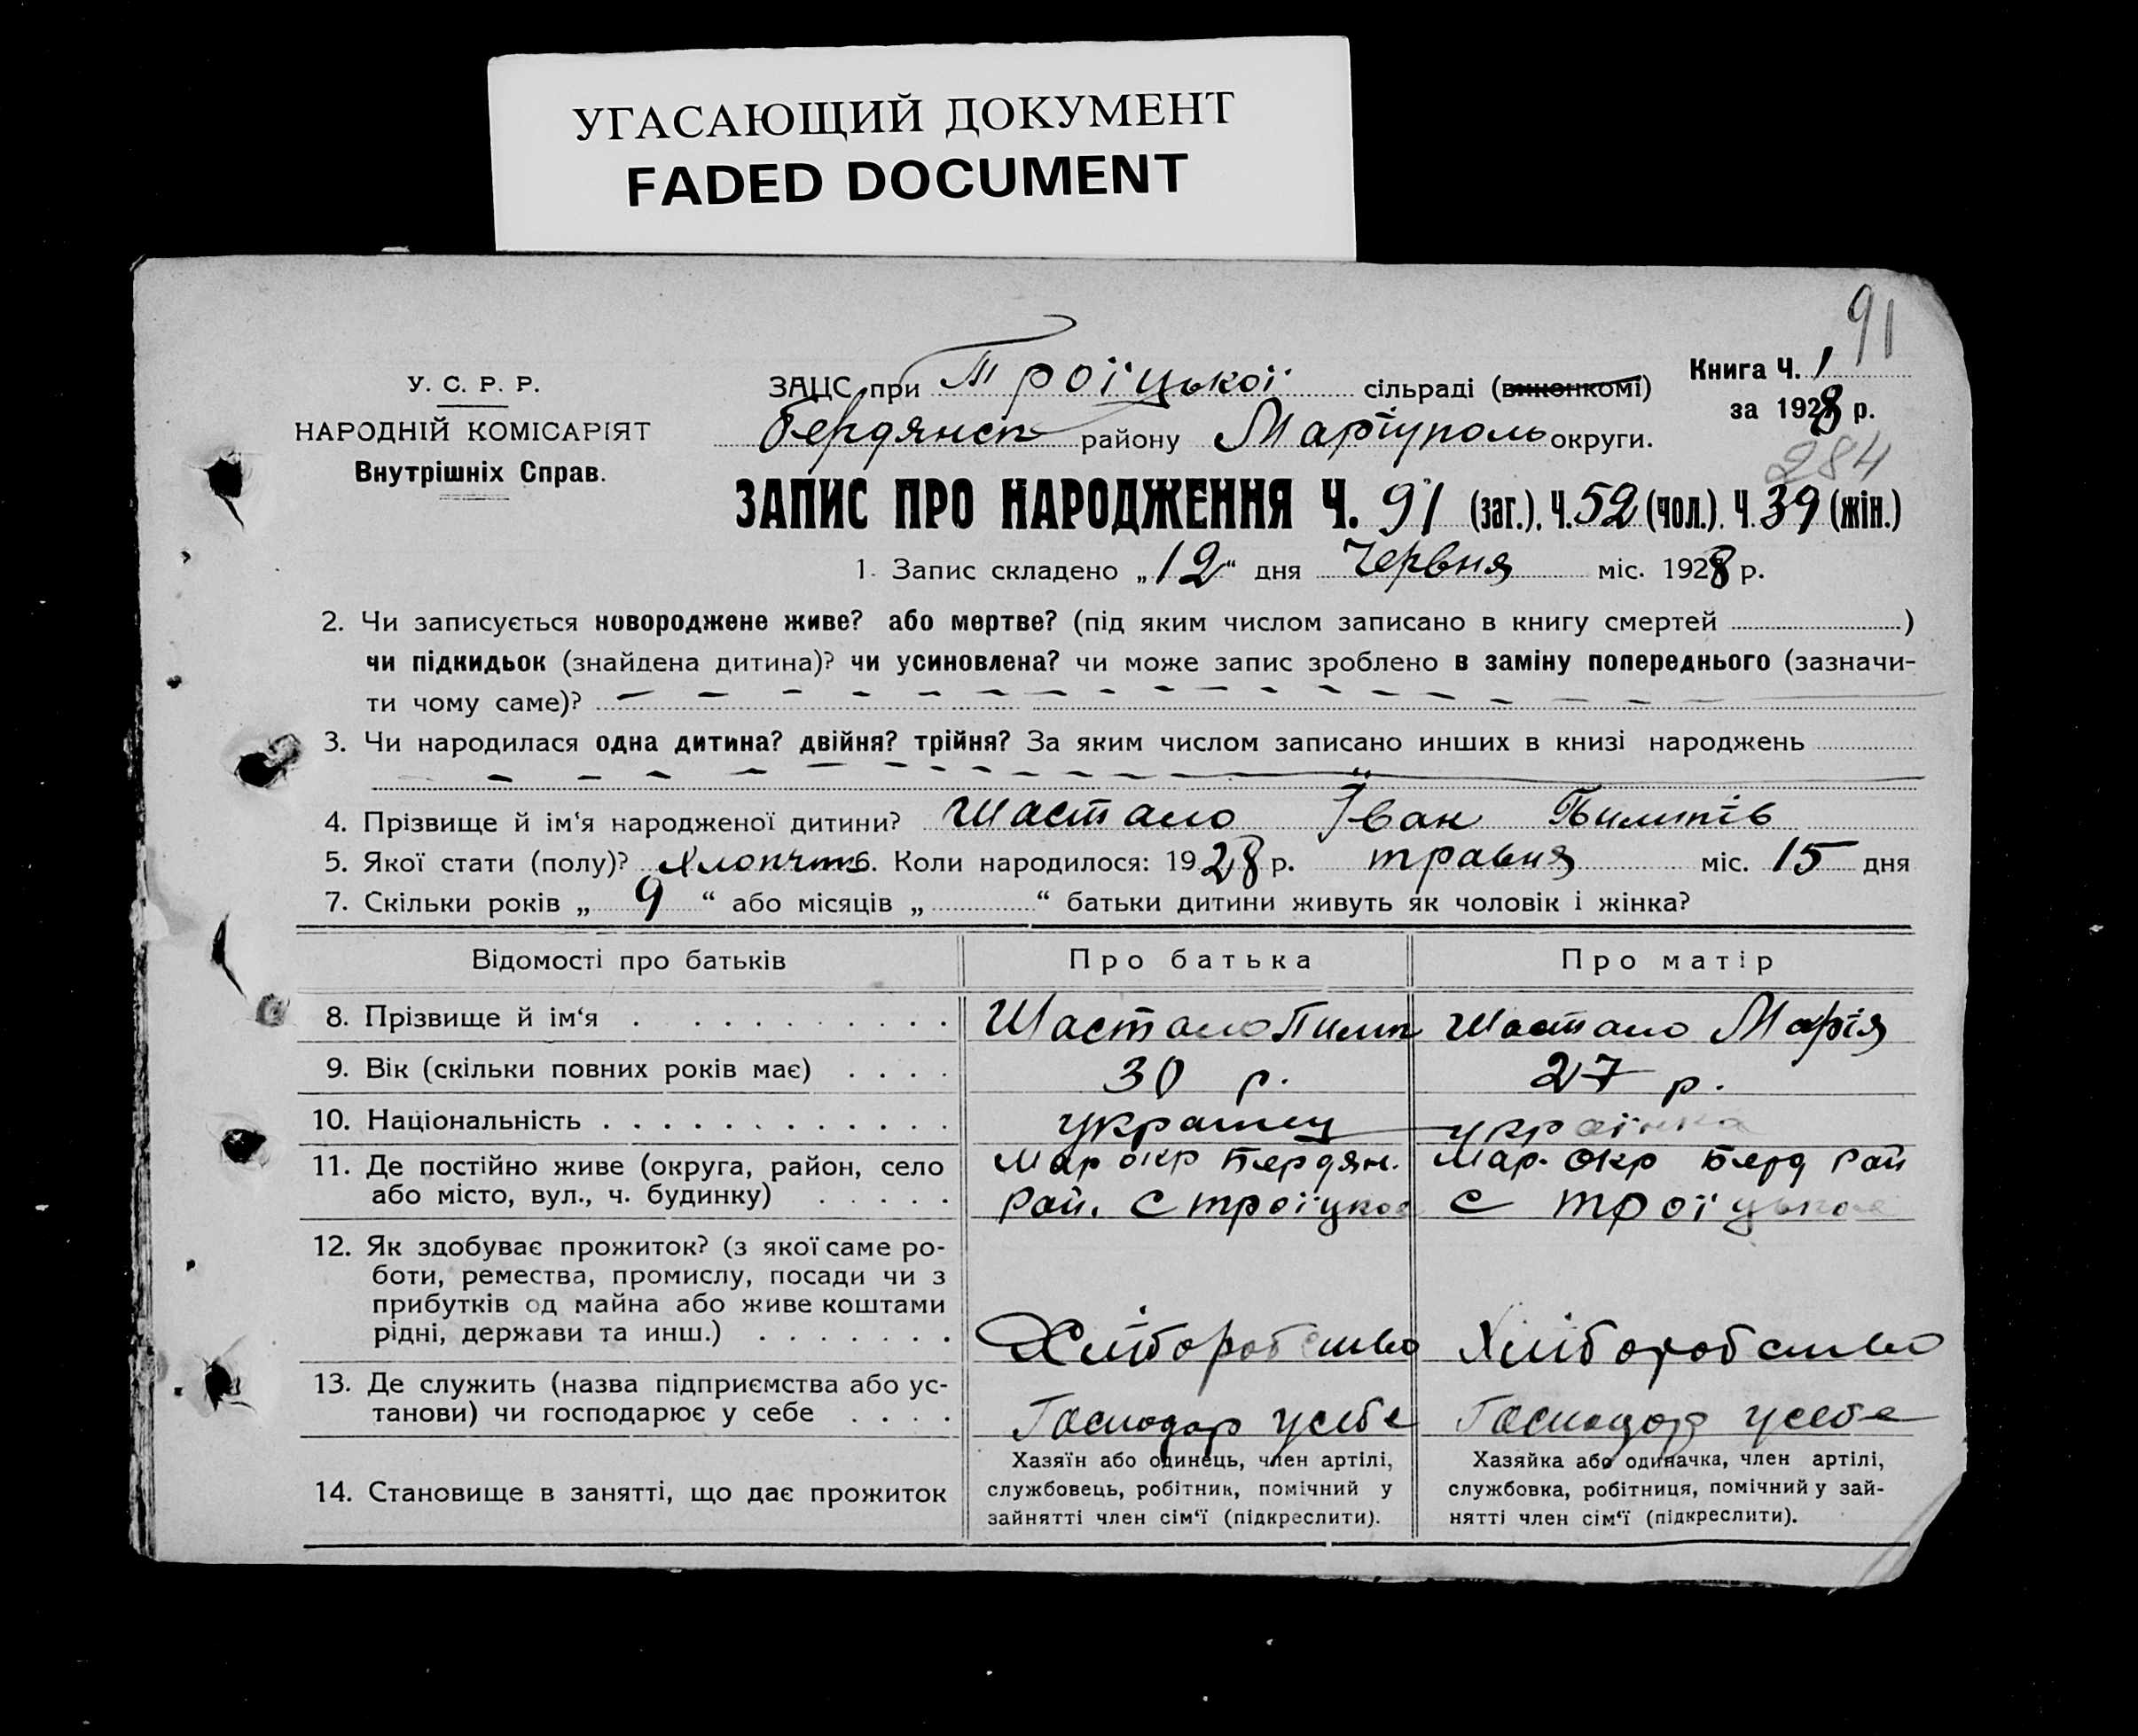 УГАСАЮЩИЙ ДОКУМЕНТ
FADED DOCUMENT
91
У. С. Р. Р.
НАРОДНІЙ КОМІСАРІЯТ
Внутрішніх Справ.
ЗАЦС при Троїцької сільраді (виконкомі)
Бердянськ району Маріуполь округи.
Книга Ч. 1
за 1928 р.
284
ЗАПИС ПРО НАРОДЖЕННЯ Ч. 91 (заг.). Ч. 52 (чол.). Ч. 39 (жін.)
1. Запис складено „12“ дня Червня міс. 1928 р.
2. Чи записується новороджене живе? або мертве? (під яким числом записано в книгу смертей )
чи підкидьок (знайдена дитина)? чи усиновлена? чи може запис зроблено в заміну попереднього (зазначи-
ти чому саме)?
3. Чи народилася одна дитина? двійня? трійня? За яким числом записано инших в книзі народжень
4. Прізвище й ім‘я народженої дитини? Шастало Іван Пилипів
5. Якої стати (полу)? Хлопчик 6. Коли народилося: 1928 р. травня міс. 15 дня
7. Скільки років „ 9 “ або місяців „ “ батьки дитини живуть як чоловік і жінка?
Відомості про батьків Про батька Про матір
8. Прізвище й ім‘я Шастало Пилип Шастало Марія
9. Вік (скільки повних років має) 30 р. 27 р.
10. Національність українець українка
11. Де постійно живе (округа, район, село Мар окр Бердян. Мар. Окр Берд рай
або місто, вул., ч. будинку) Рай. С Троїцкое С Троїцькое
12. Як здобуває прожиток? (з якої саме ро-
боти, ремества, промислу, посади чи з
прибутків од майна або живе коштами
рідні, держави та инш.) Хліборобство Хліборобство
13. Де служить (назва підприємства або ус-
танови) чи господарює у себе Господар у себе Господар у себе
14. Становище в занятті, що дає прожиток
Хазяїн або одинець, член артілі,
службовець, робітник, помічний у
зайнятті член сім‘ї (підкреслити).
Хазяйка або одиначка, член артілі,
службовка, робітниця, помічний у зай-
нятті член сім‘ї (підкреслити).